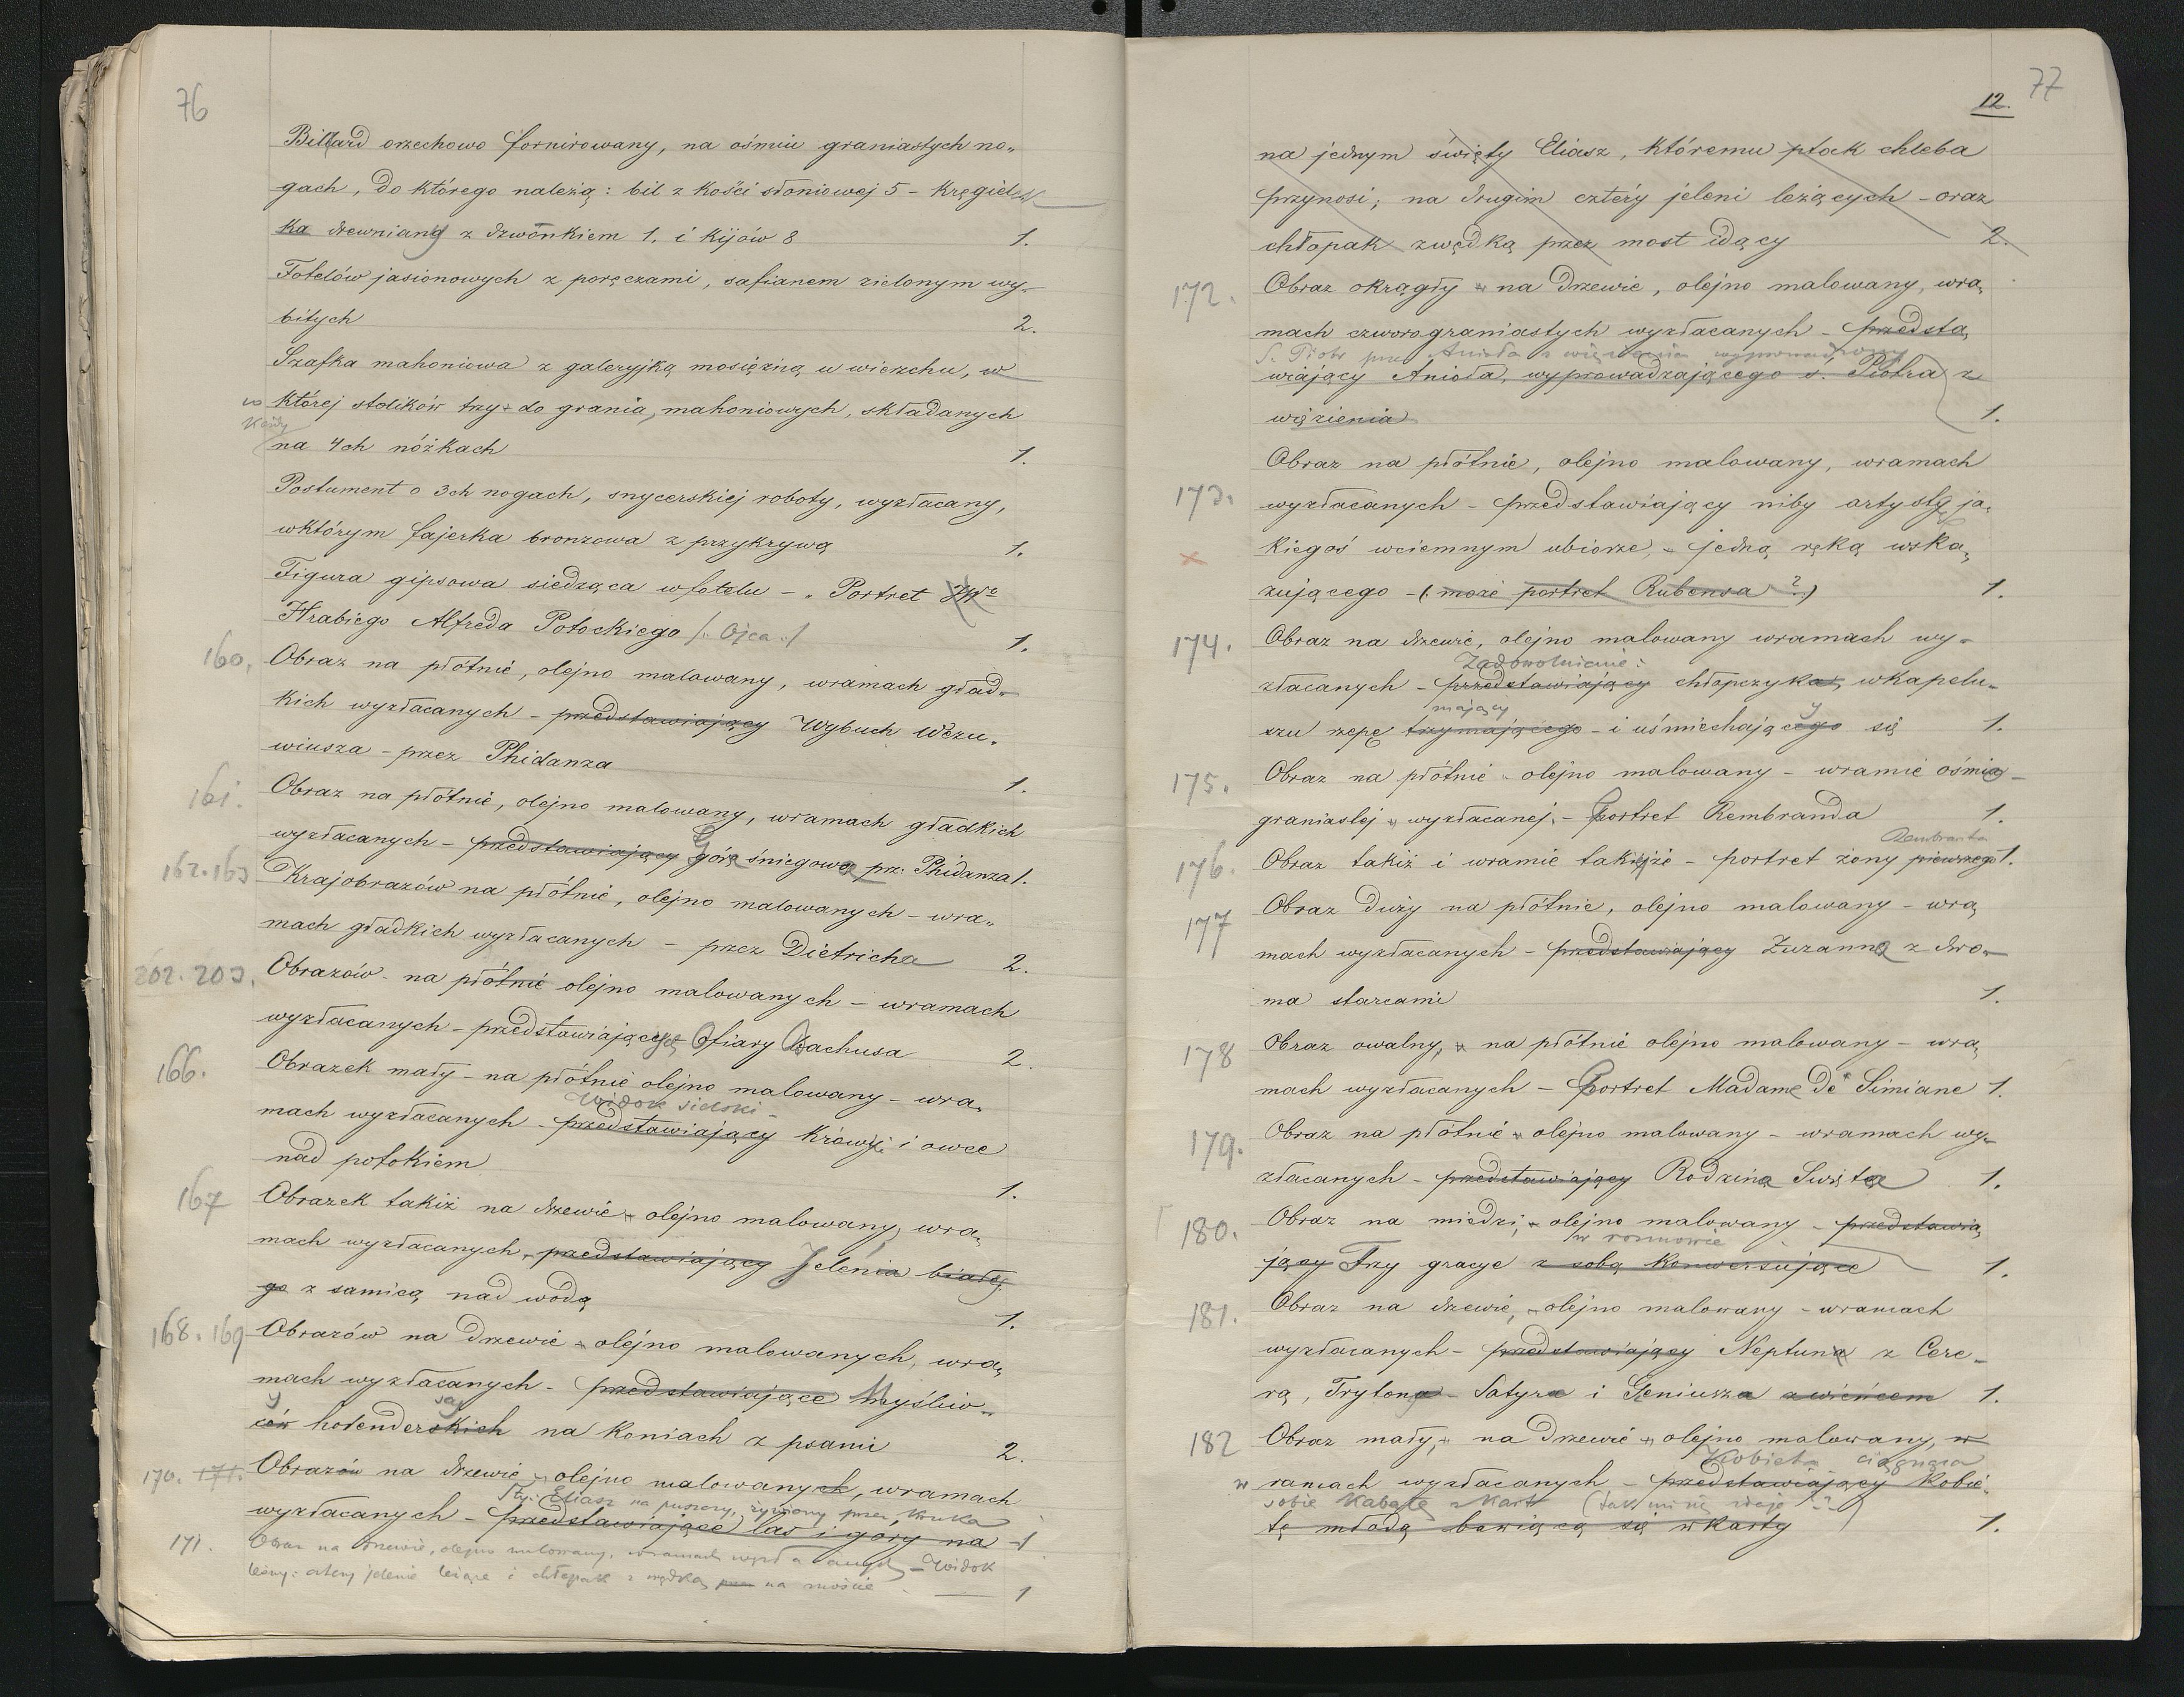 76
Billard orzechowo fornirowany, na ośmiu graniastych no„
gach, do którego należą: bil z kości słoniowej 5 – kręgiel
ka drewniany z dzwónkiem 1. i kijów 8 1.
Fotelów jasionowych z poręczami, safianem zielonym wy„
bitych 2.
Szafka mahoniowa z galeryjką mosiężną u wierzchu, w
w której stolików trzy do grania, mahoniowych, składanych
każdy
na 4ch nóżkach 1.
Postument o 3ch nogach, snycerskiej roboty, wyzłacany,
wktórym fajerka bronzowa z przykrywą 1.
Figura gipsowa siedząca wfotelu – „ Portret JWo
Hrabiego Alfreda Potockiego /: Ojca :/ 1.
160. Obraz na płótnie, olejno malowany, wramach gład„
kich wyzłacanych – przedstawiający Wybuch Wezu„
wiusza – przez Phidanza 1.
161. Obraz na płótnie, olejno malowany, wramach gładkich
wyzłacanych – przedstawiający górę śniegową prz: Phidanza 1.
162. 163 Krajobrazów na płótnie, olejno malowanych – wra„
mach gładkich wyzłacanych – przez Dietricha 2.
202. 203. Obrazów na płótnie olejno malowanych – wramach
wyzłacanych – przedstawiających Ofiary Bachusa 2.
166. Obrazek mały – na płótnie olejno malowany – wra„
Widok sielski –
mach wyzłacanych – przedstawiający krowy i owce
nad potokiem 1.
167 Obrazek takiż na drzewie – olejno malowany, wra„
mach wyzłacanych, przedstawiający Jelenia białe„
go z samicą nad wodą 1.
168. 169 Obrazów na drzewie – olejno malowanych, wra„
mach wyzłacanych – przedstawiające Myśliw„
y są
ców holenderskich na koniach z psami 2.
170. 171. Obrazów na drzewie – olejno malowanych, wramach
Sty: Eliasz na puszczy, żywiony przez kruka
wyzłacanych – przedstawiające las i góry na 1
171. Obraz na drzewie, olejno malowany, wramach wyzłacanych – Widok
leśny: cztery jelenie leżące i chłopak z wędką przez na moście 1
77
12.
na jednym święty Eliasz, któremu ptak chleba
przynosi; na drugim cztéry jeleni leżących – oraz
chłopak zwędką przez most idący 2.
172. Obraz okrągły na drzewie, olejno malowany, wra„
mach czworograniastych wyzłacanych – przedsta„
S. Piotr przez Anioła z więzienia wyprowadzony
wiający Anioła, wyprowadzającego ś. Piotra z
więzienia 1.
173. Obraz na płótnie, olejno malowany, wramach
wyzłacanych – przedstawiający niby artystę ja„
kiegoś wciemnym ubiorze, – jedną ręką wska„
zującego – (może portret Rubensa ?) 1.
174. Obraz na drzewie, olejno malowany wramach wy„
Zadowolnienie:
złacanych – przedstawiający chłopczyka, wkapelu„
mający y
szu rzepę trzymającego – i uśmiechającego się 1.
175. Obraz na płótnie olejno malowany – wramie ośmio–
graniastej wyzłacanej. – Portret Rembranda 1.
Rembranta
176. Obraz takiż i wramie takiejże – portret żony pierwszego 1.
177 Obraz duży na płótnie, olejno malowany – wra„
mach wyzłacanych – przedstawiający Zuzanna z dwo„
ma starcami 1.
178 Obraz owalny, na płótnie olejno malowany – wra„
mach wyzłacanych – Portret Madame De Simiane 1.
179. Obraz na płótnie olejno malowany – wramach wy„
złacanych – przedstawiający Rodzina Święta 1.
180. Obraz na miedzi, – olejno malowany – przedstawia„
w rozmowie
jący Trzy gracye z sobą konwersujące 1.
181. Obraz na drzewie, – olejno malowany – wramach
wyzłacanych – przedstawiający Neptuna z Cere„
rą, Trytona – Satyra i Geniusza zwieńcem 1.
182 Obraz mały, na drzewie olejno malowany, w
Kobieta ciągnąca
w ramach wyzłacanych – przedstawiający kobie„
sobie kabałę z kart (tak mi się zdaje ?)
tę młodą bawiącą się w karty 1.